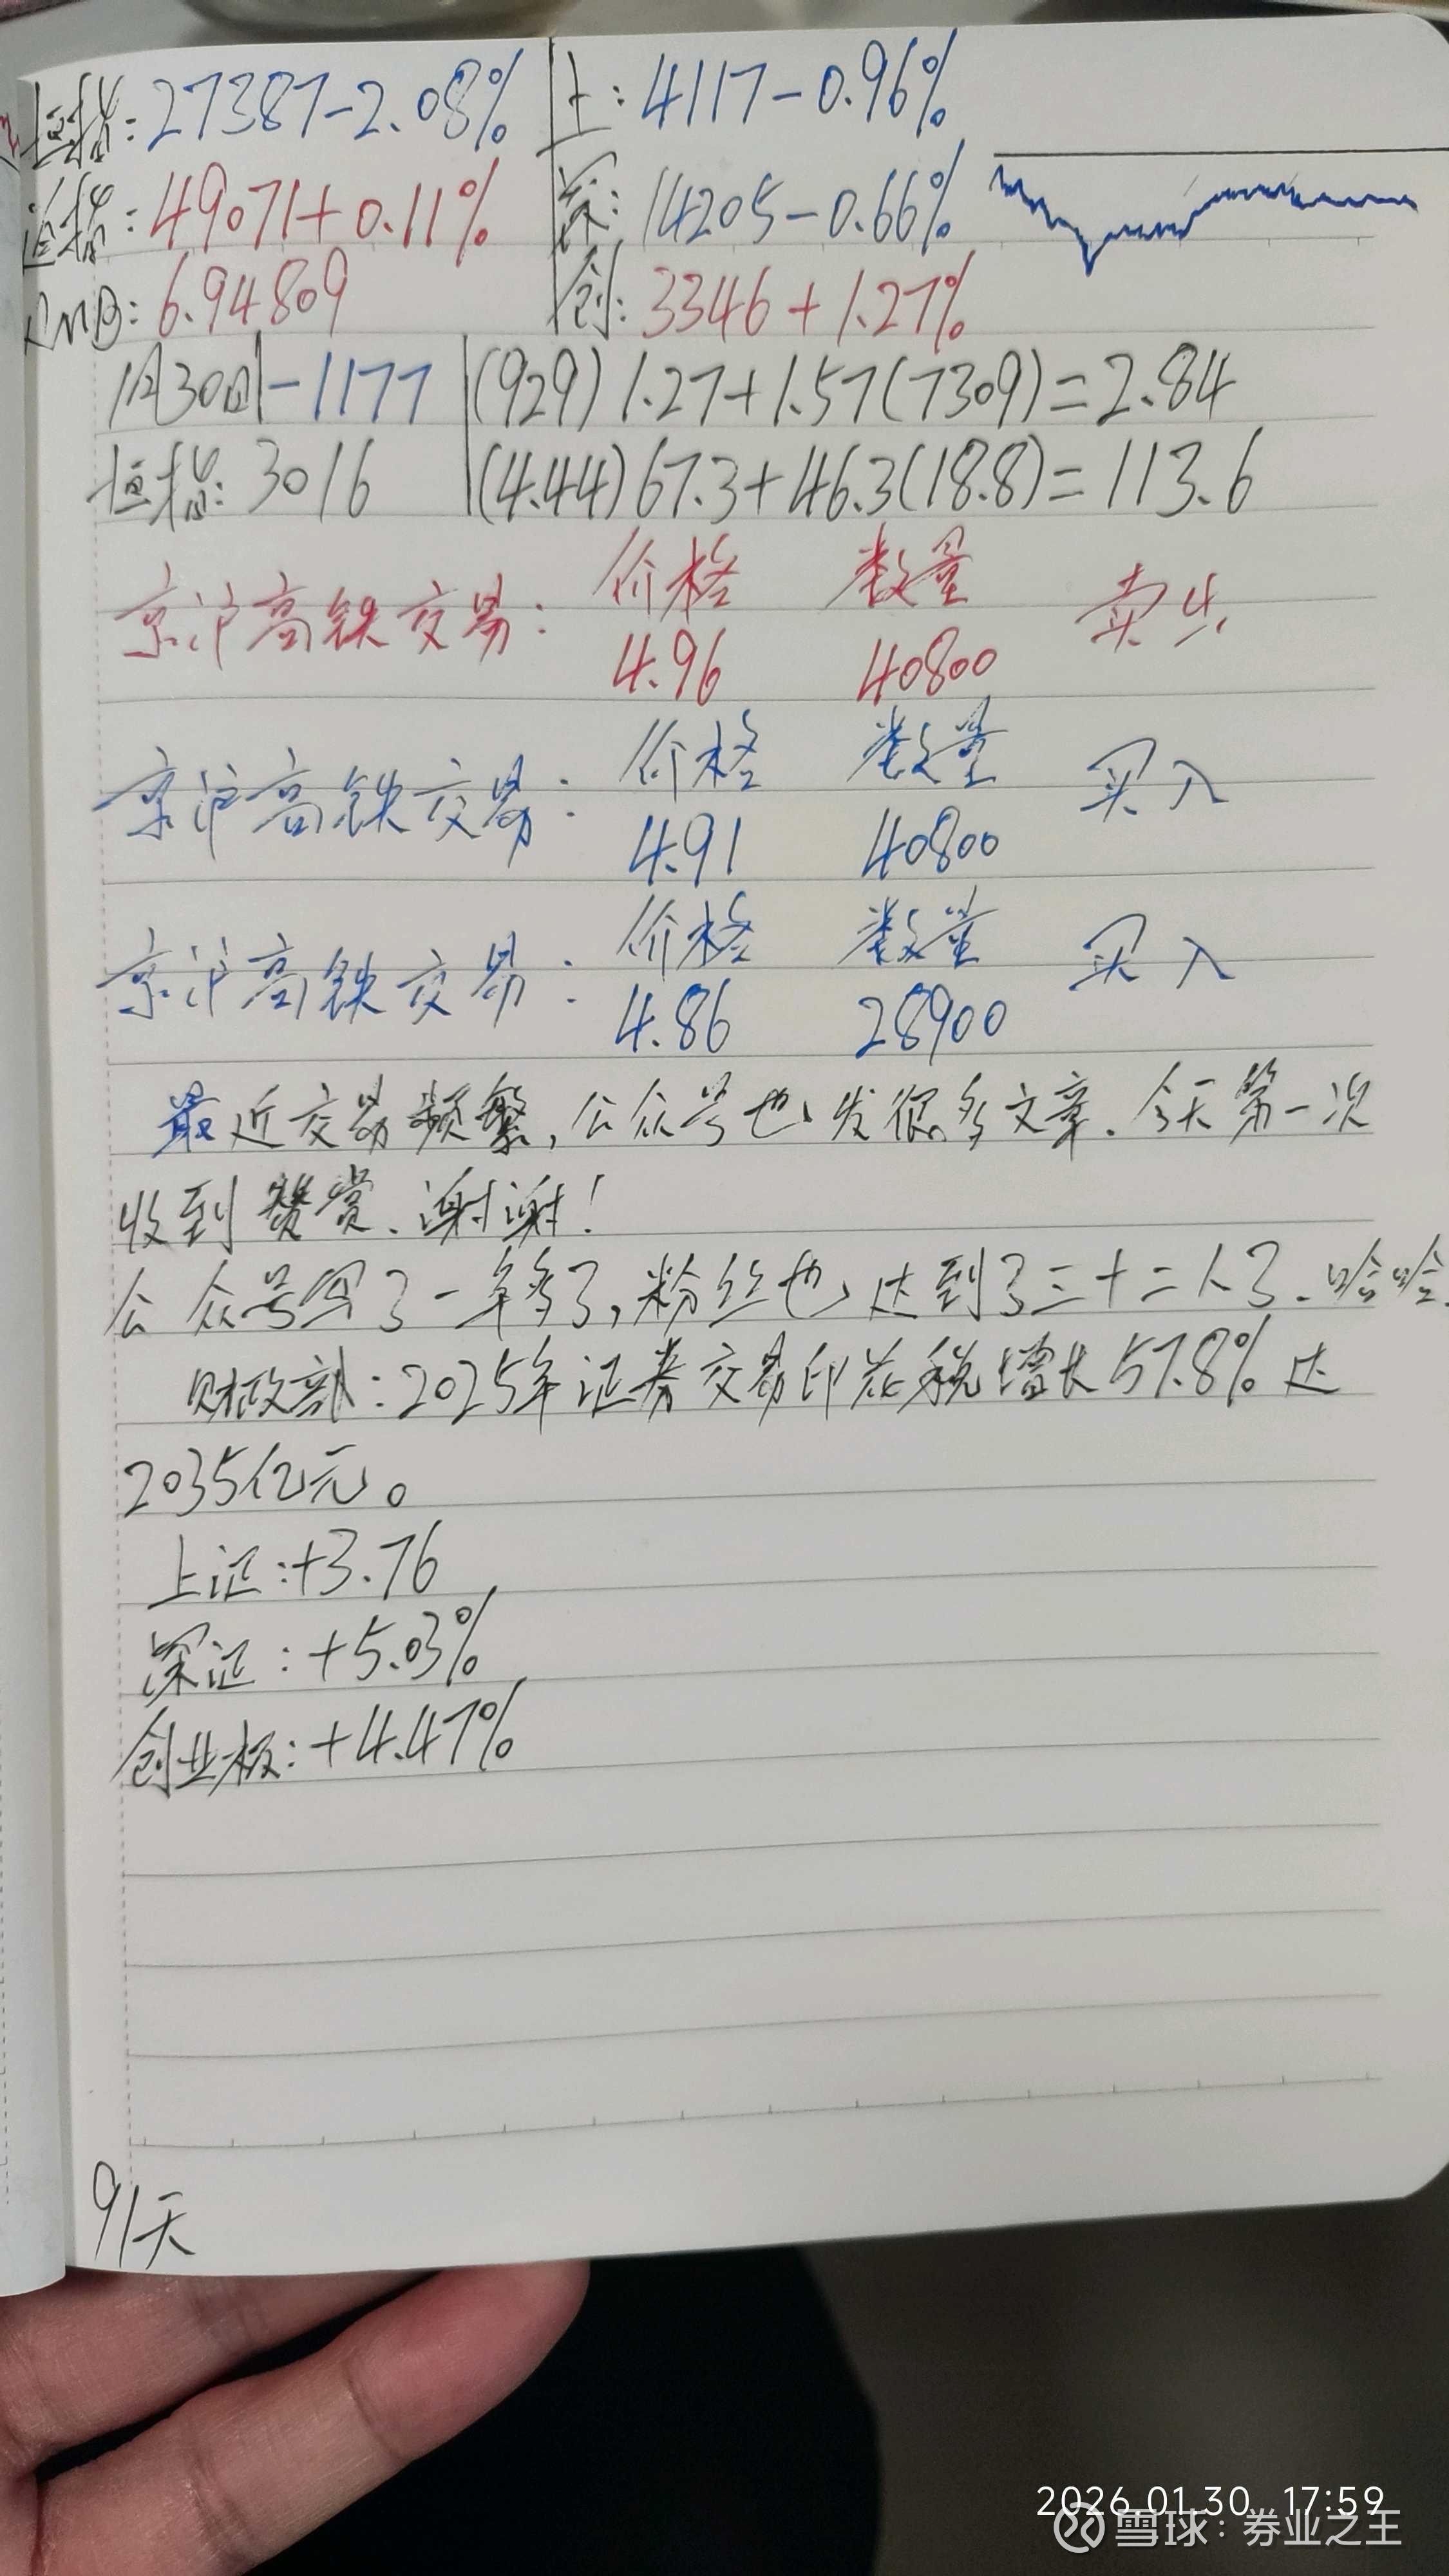 恒指:27387-2.08%
上:4117-0.96%
道指:49071+0.11%
深:14205-0.66%
RMB:6.94809
创:3346+1.27%
1月30日 -1177
(929)1.27+1.57(7309)=2.84
恒指:3016
(4.44)67.3+46.3(18.8)=113.6
京沪高铁交易: 价格 数量 卖出
4.96 40800
京沪高铁交易: 价格 数量 买入
4.91 40800
京沪高铁交易: 价格 数量 买入
4.86 28900
最近交易频繁,公众号也发很多文章.今天第一次
收到赞赏、谢谢!
公众号写了一年多了,粉丝也达到了三十二人了、哈哈.
财政部:2025年证券交易印花税增长57.8%达
2035亿元。
上证:+3.76
深证:+5.03%
创业板:+4.47%
91天
2026.01.30 17:59
雪球:券业之王